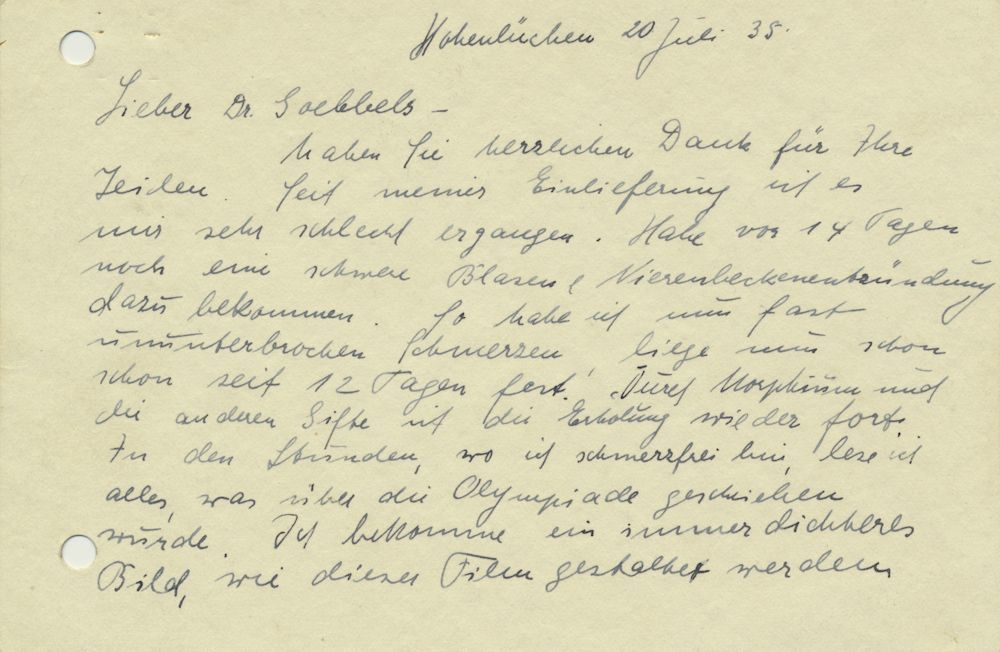 Hohenlüchen 20 Juli 35.
Lieber Dr. Goebbels –
haben Sie herzlichen Dank für Ihre
Zeilen. Seit meiner Einlieferung ist es
mir sehr schlecht ergangen. Habe vor 14 Tagen
noch eine schwere Blasen & Nierenbeckenentzündung
dazu bekommen. So habe ich nun fast
ununterbrochen Schmerzen liege nun schon
schon seit 12 Tagen fest! Durch Morphium und
die anderen Gifte ist die Erholung wieder fort.
In den Stunden, wo ich schmerzfrei bin, lese ich
alles, was über die Olympiade geschrieben
wurde. Ich bekomme ein immer dichteres
Bild, wie dieser Film gestaltet werden